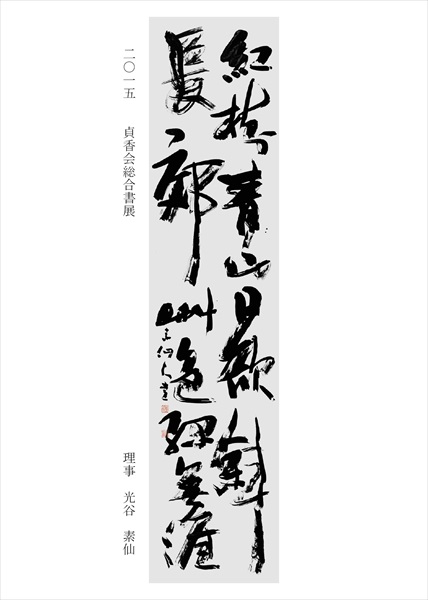 紅樹青山日欲斜
長郊艸色緑無涯
二〇一五　貞香会総合書展
理事　光谷　素仙